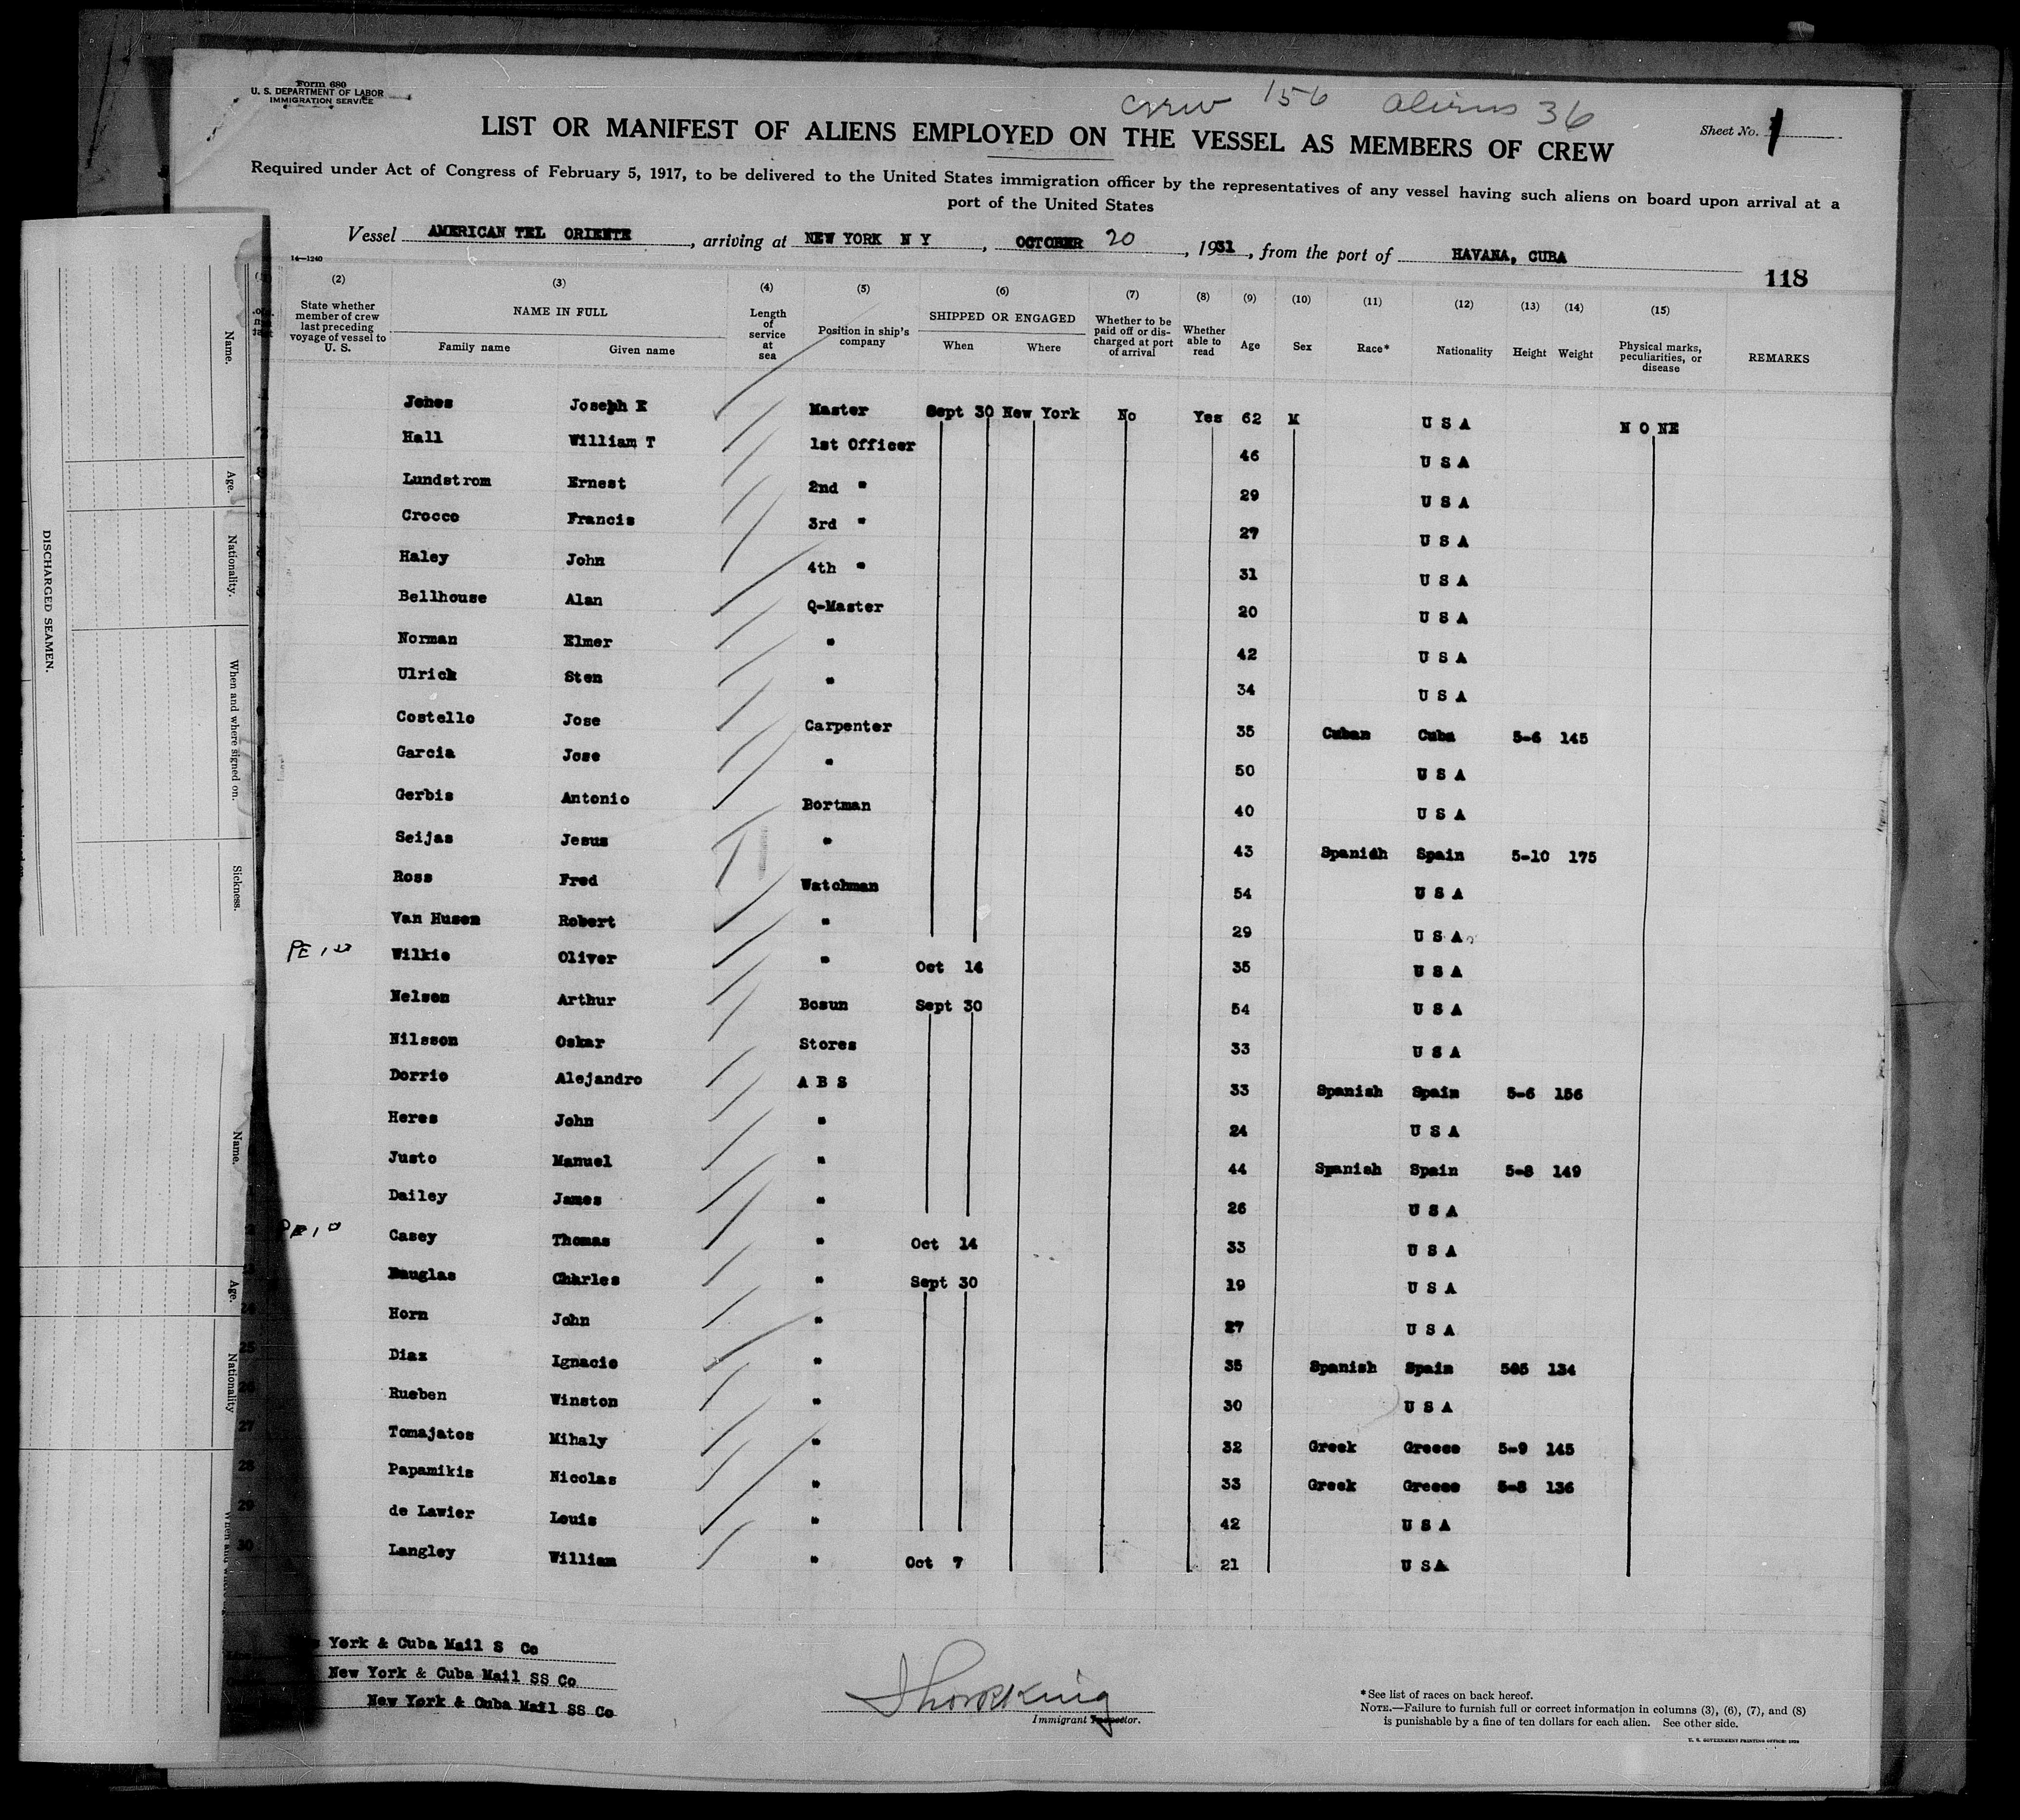 Form 680
U. S. DEPARTMENT OF LABOR
IMMIGRATION SERVICE
crew 156 aliens 36
LIST OR MANIFEST OF ALIENS EMPLOYED ON THE VESSEL AS MEMBERS OF CREW
Sheet No. 1
Required under Act of Congress of February 5, 1917, to be delivered to the United States immigration officer by the representatives of any vessel having such aliens on board upon arrival at a
port of the United States
Vessel AMERICAN TEL ORIENTE, arriving at NEW YORK N Y, OCTOBER 20, 1931, from the port of HAVANA, CUBA
14—1240
118
(2) (3) (4) (5) (6) (7) (8) (9) (10) (11) (12) (13) (14) (15)
State whether member of crew last preceding voyage of vessel to U. S. NAME IN FULL Family name Given name Length of service at sea Position in ship's company SHIPPED OR ENGAGED When Where Whether to be paid off or discharged at port of arrival Whether able to read Age Sex Race* Nationality Height Weight Physical marks, peculiarities, or disease REMARKS
Jones Joseph E Master Sept 30 New York No Yes 62 M U S A N O NE
Hall William T 1st Officer 46 U S A
Lundstrom Ernest 2nd " 29 U S A
Crocco Francis 3rd " 27 U S A
Haley John 4th " 31 U S A
Bellhouse Alan Q-Master 20 U S A
Norman Elmer " 42 U S A
Ulrick Sten " 34 U S A
Costello Jose Carpenter 35 Cuban Cuba 5-6 145
Garcia Jose " 50 U S A
Gerbis Antonio Bortman 40 U S A
Seijas Jesus " 43 Spanish Spain 5-10 175
Ross Fred Watchman 54 U S A
Van Husen Robert " 29 U S A
PE Wilkie Oliver " Oct 14 35 U S A
Nelson Arthur Bosun Sept 30 54 U S A
Nilsson Oskar Stores 33 U S A
Dorrio Alejandro A B S 33 Spanish Spain 5-6 156
Heres John " 24 U S A
Justo Manuel " 44 Spanish Spain 5-8 149
Dailey James " 26 U S A
PE Casey Thomas " Oct 14 33 U S A
Dauglas Charles " Sept 30 19 U S A
24 Horn John " 27 U S A
25 Diaz Ignacio " 35 Spanish Spain 505 134
26 Rueben Winston " 30 U S A
27 Tomajatos Mihaly " 32 Greek Greece 5-9 145
28 Papamikis Nicolas " 33 Greek Greece 5-8 136
29 de Lawier Louis " 42 U S A
30 Langley William " Oct 7 21 U S A
York & Cuba Mail S Co
New York & Cuba Mail SS Co
New York & Cuba Mail SS Co
Immigrant Inspector.
*See list of races on back hereof.
NOTE.—Failure to furnish full or correct information in columns (3), (6), (7), and (8)
is punishable by a fine of ten dollars for each alien. See other side.
U. S. GOVERNMENT PRINTING OFFICE:
DISCHARGED SEAMEN.
Name.
Age.
Nationality.
When and where signed on.
Sickness.
Name.
Age.
Nationality